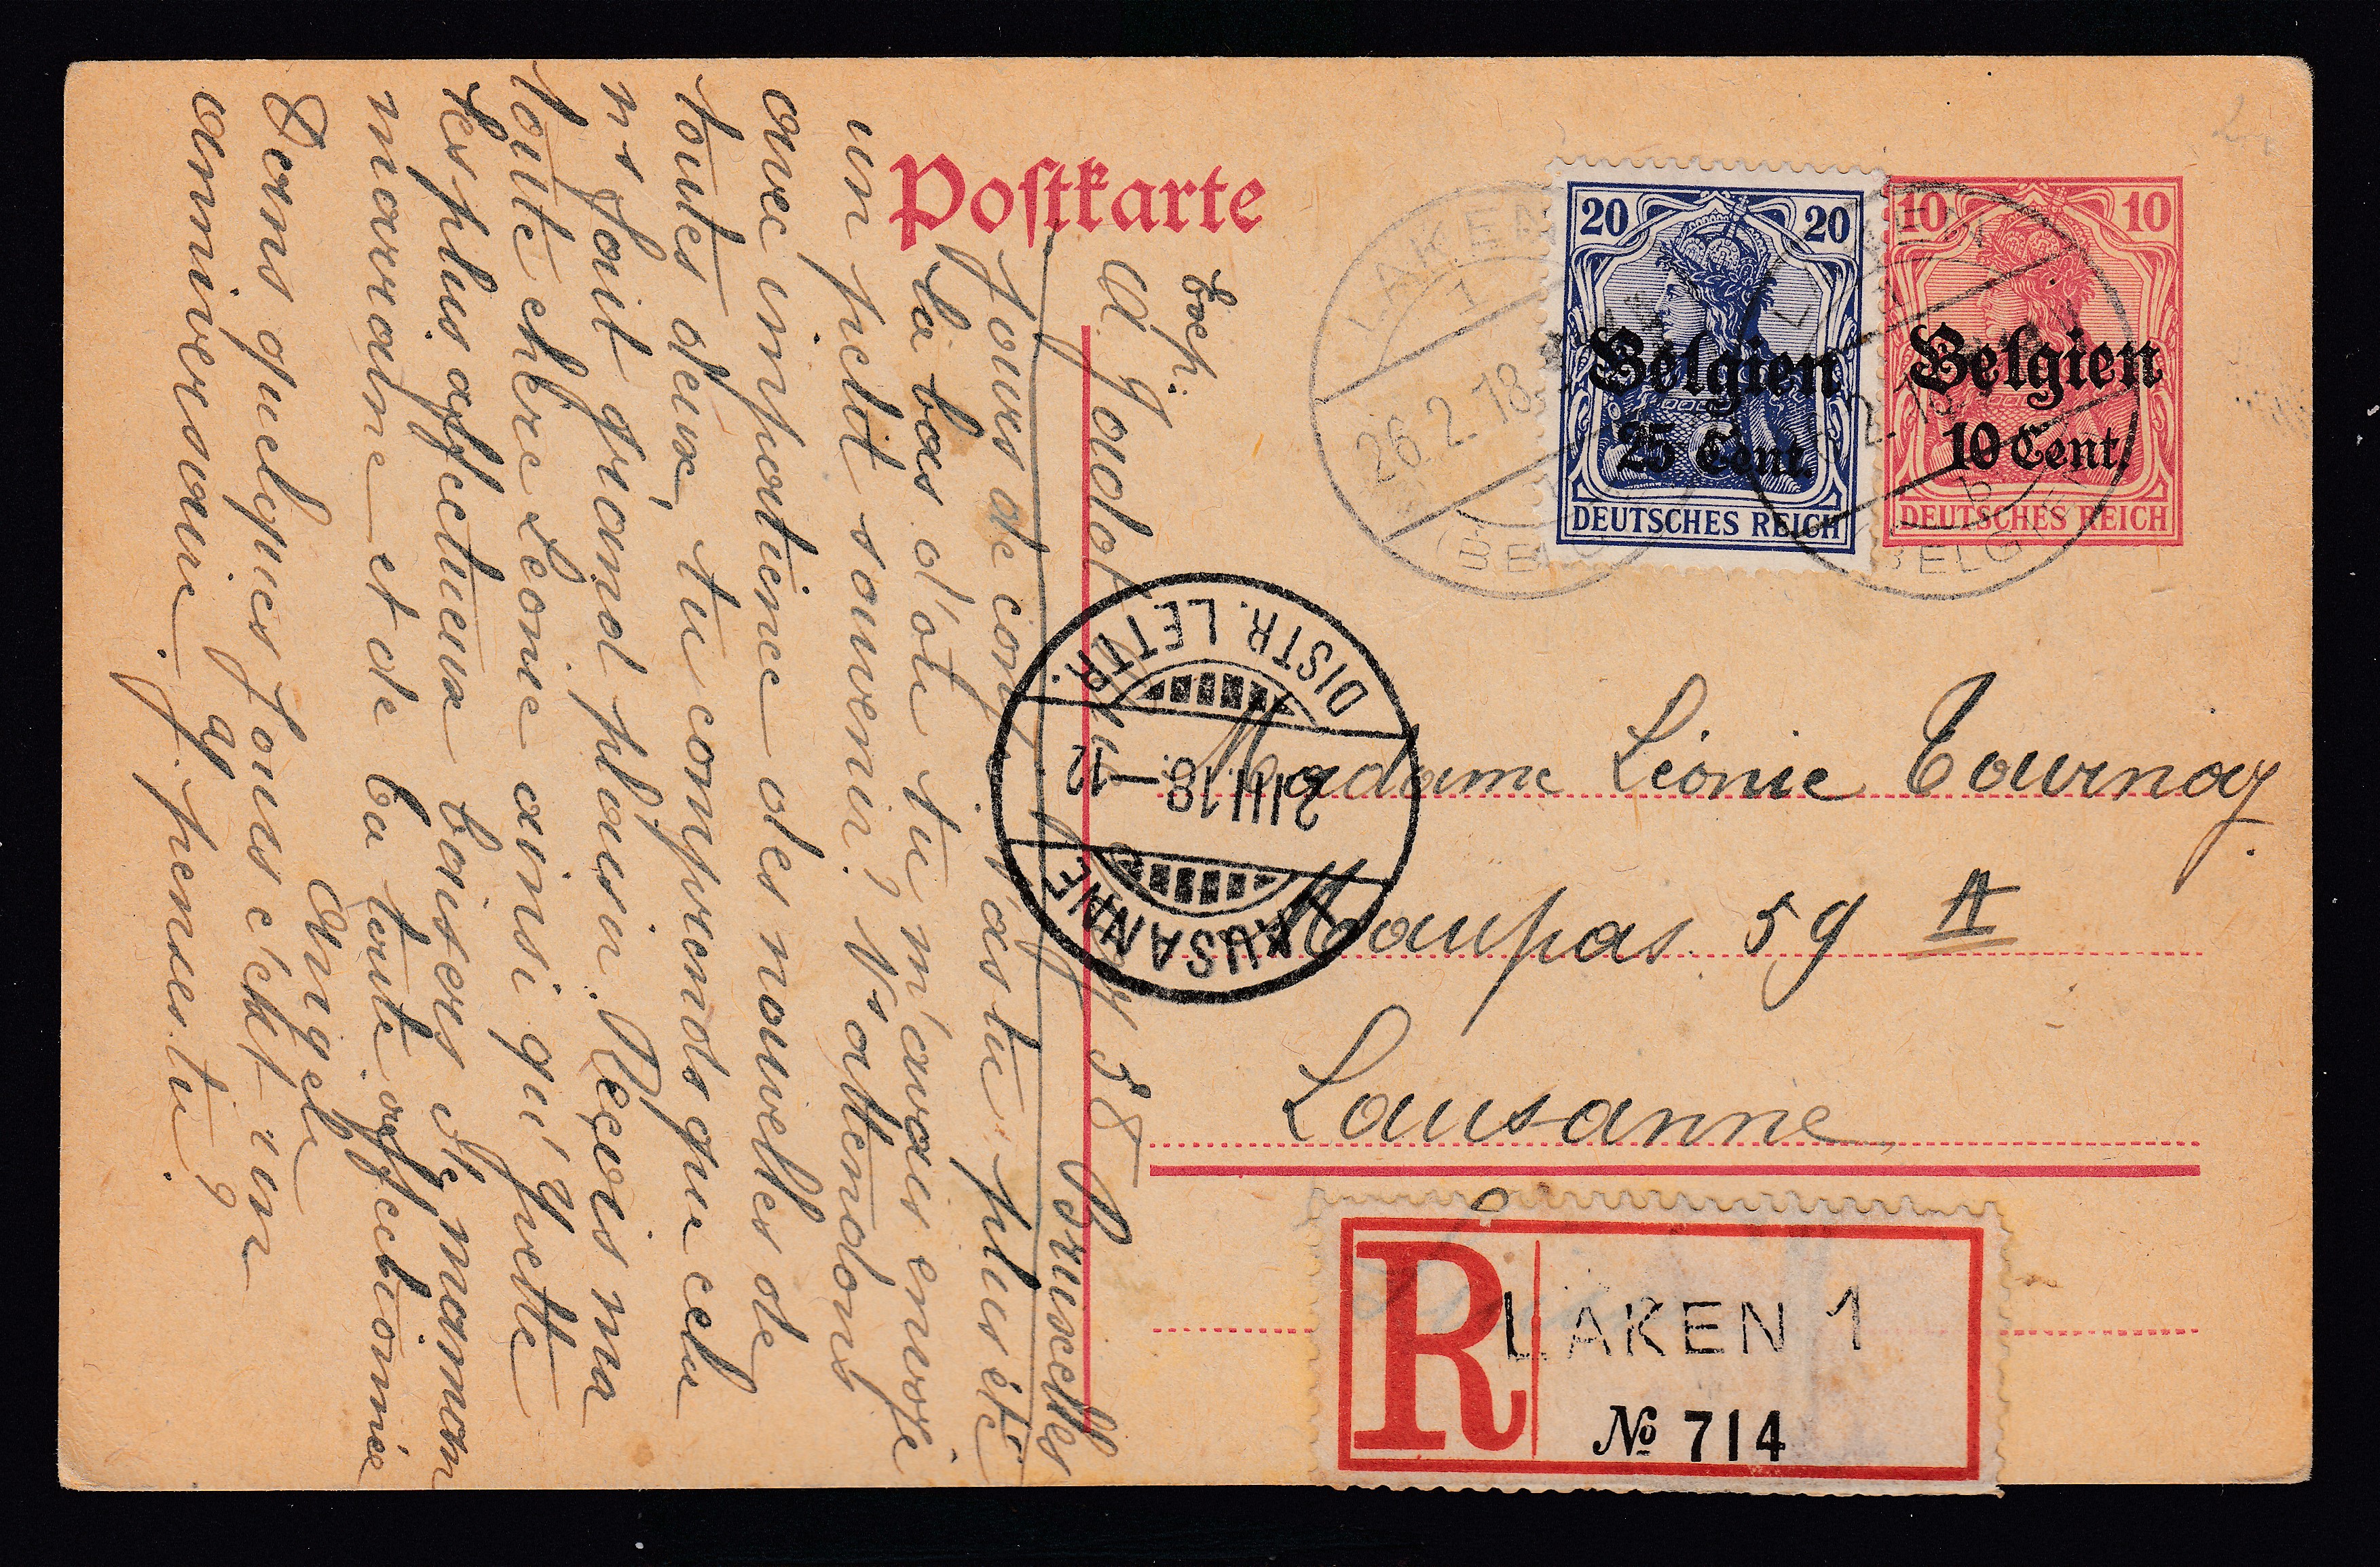 Postkarte
20 20
Belgien
25 Cent.
DEUTSCHES REICH
10 10
Belgien
10 Cent.
DEUTSCHES REICH
LAKEN
1
26.2.18
BELGIEN
DISTR. LETTR.
2.III.18.–12.
LAUSANNE
Madame Léonie Tournay
Maupas. 59 A
Lausanne
R LAKEN 1
№ 714
Exp.
38 Bruxelles
jours de congé n'as tu plus été
là bas d'où tu m'avais envoyé
un petit souvenir? Ns attendons
avec impatience des nouvelles de
toutes deux, tu comprends que cela
ns fait grand plaisir. Reçois ma
toute chère Léonie ainsi qu'
les plus affectueux baisers de maman
marraine et de ta toute affectionnée
Angèle
Dans quelques jours c'est un
anniversaire. y penses-tu?